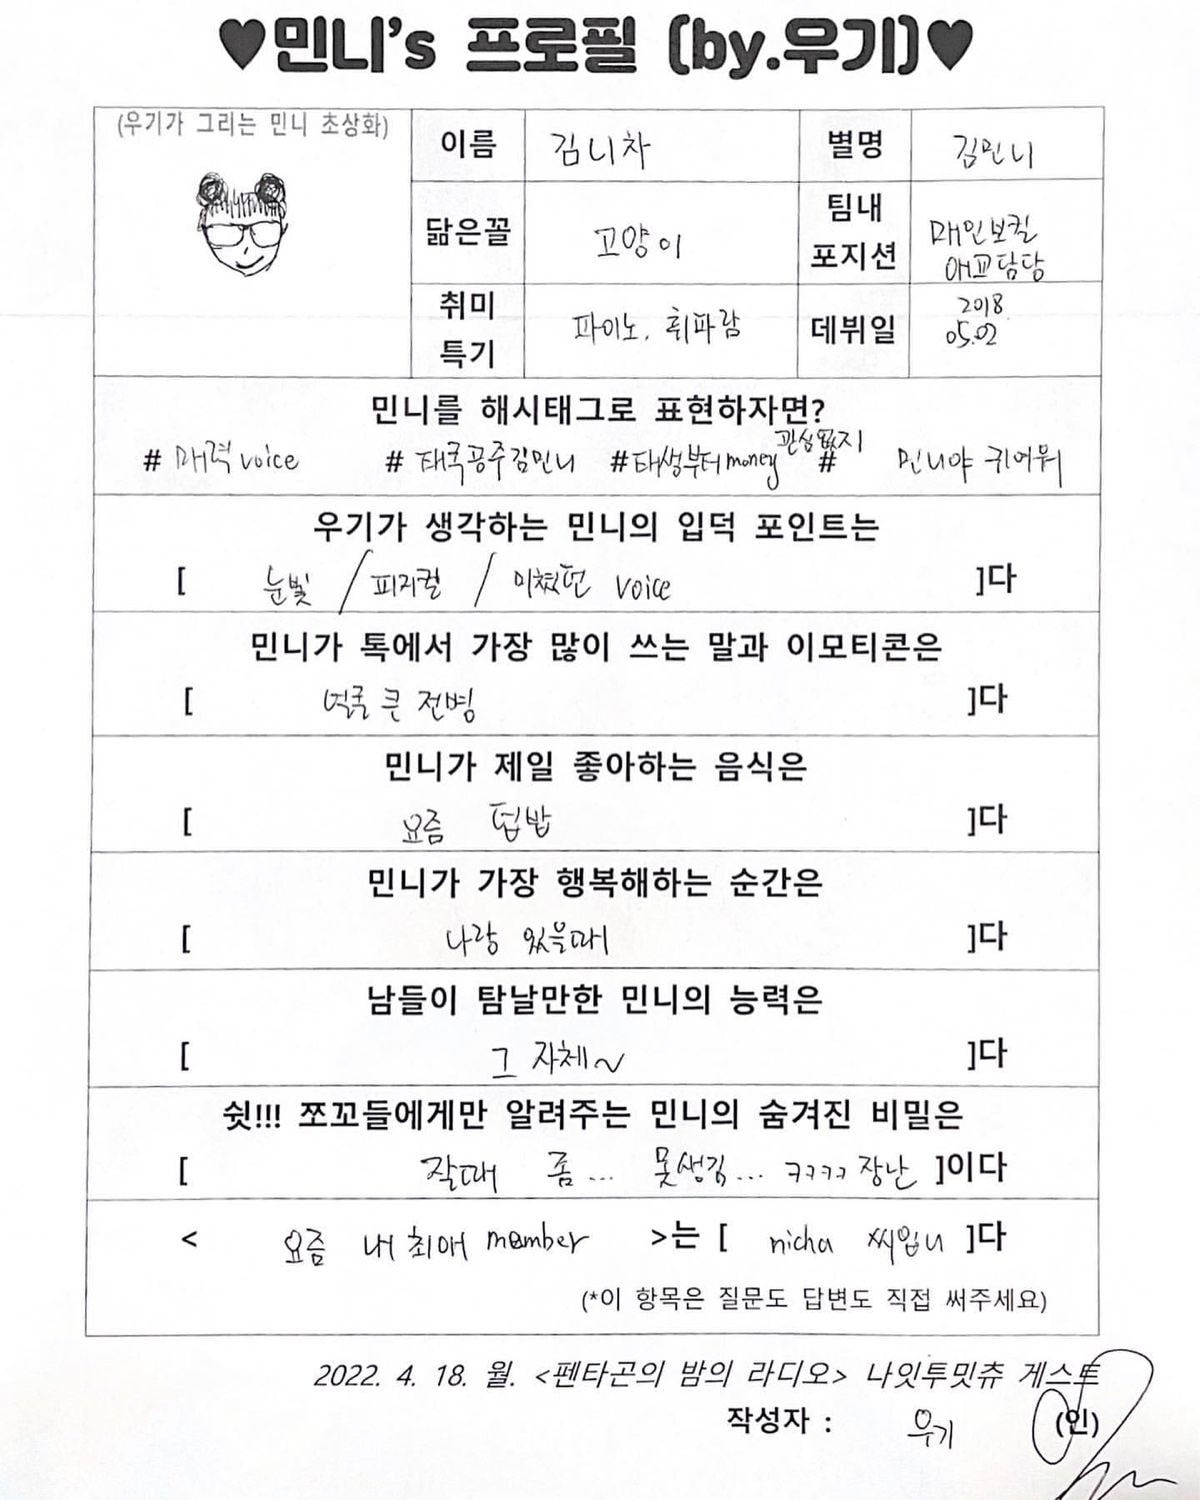 ♥민니's 프로필 (by.우기)♥
(우기가 그리는 민니 초상화)
이름 김니차 별명 김민니
닮은꼴 고양이 팀내 포지션 매인보컬 애교담당
취미 특기 파이노, 휘파람 데뷔일 2018 05.02
민니를 해시태그로 표현하자면?
#매력voice #태국공주김민니 #태생부터money 관심없지 # 민니야 귀여워
우기가 생각하는 민니의 입덕 포인트는
[ 눈빛 / 피지컬 / 미쳤던 voice ]다
민니가 톡에서 가장 많이 쓰는 말과 이모티콘은
[ 얼굴 큰 전병 ]다
민니가 제일 좋아하는 음식은
[ 요즘 덥밥 ]다
민니가 가장 행복해하는 순간은
[ 나랑 있을때 ]다
남들이 탐날만한 민니의 능력은
[ 그 자체~ ]다
쉿!!! 쪼꼬들에게만 알려주는 민니의 숨겨진 비밀은
[ 잘때 좀... 못생김... ㅋㅋㅋㅋ 장난 ]이다
< 요즘 내 최애 member >는 [ nicha 씨입니 ]다
(*이 항목은 질문도 답변도 직접 써주세요)
2022. 4. 18. 월. <펜타곤의 밤의 라디오> 나잇투밋츄 게스트
작성자 : 우기 (인)